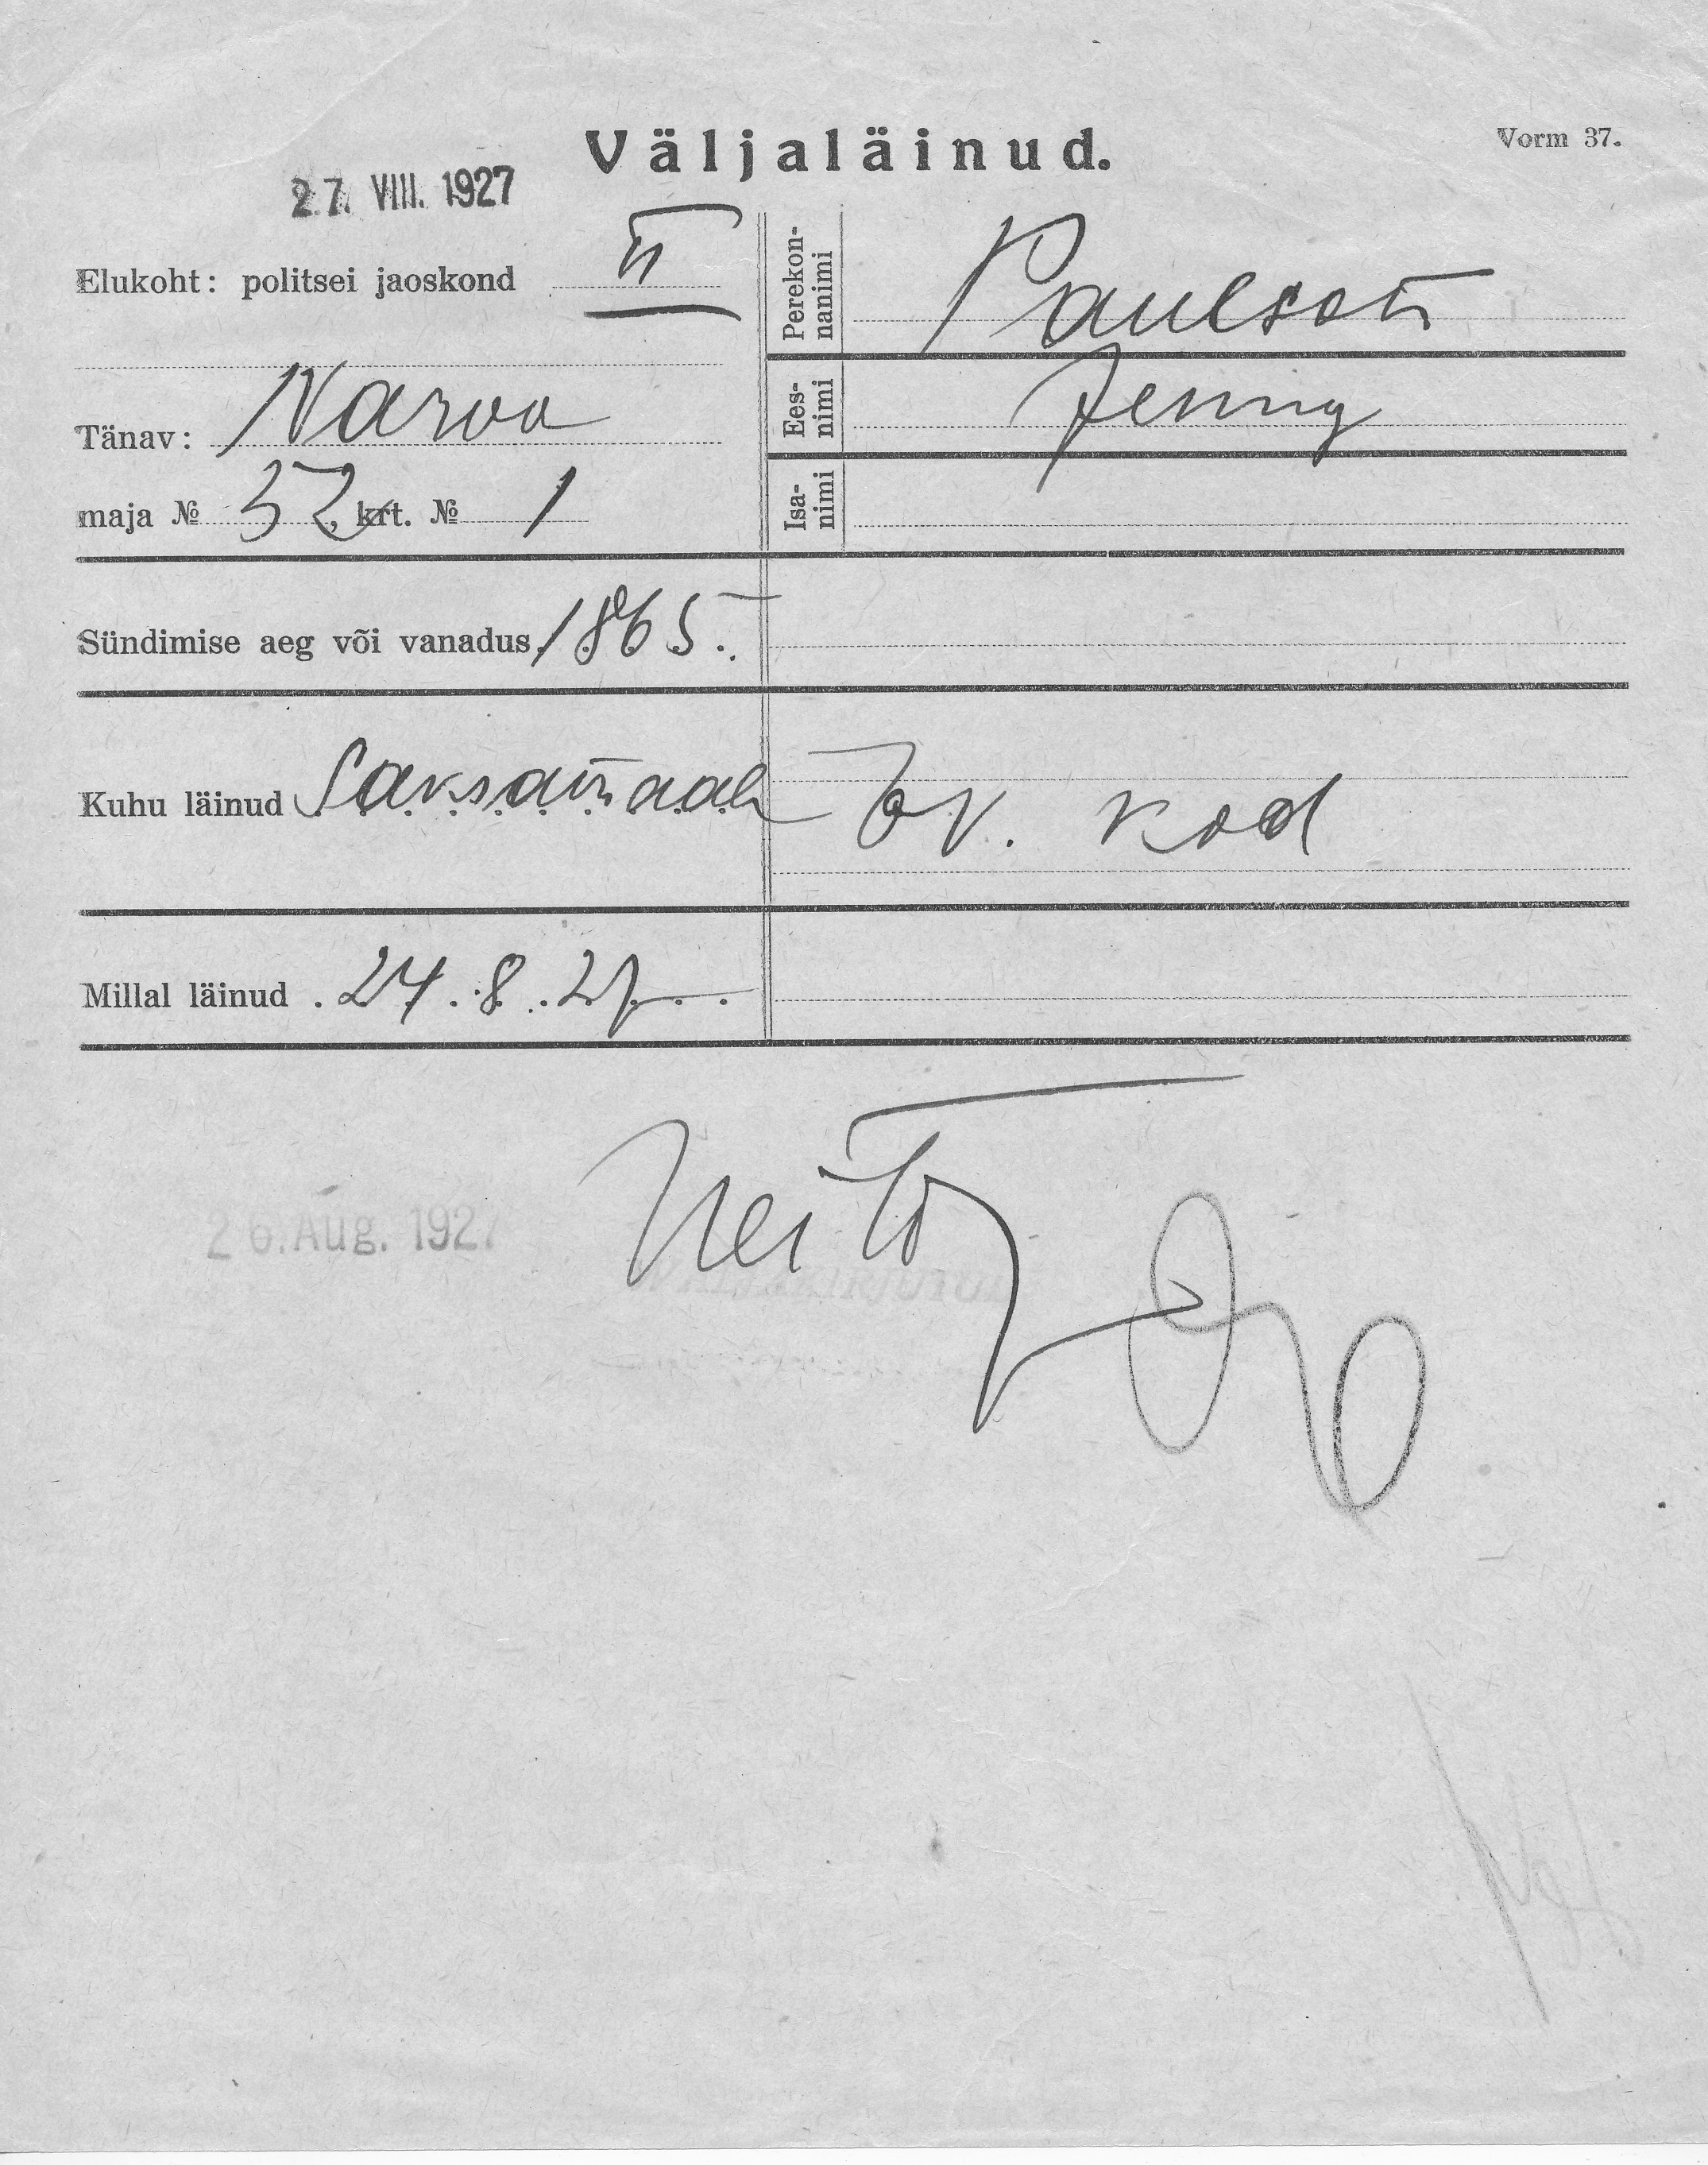 Väljaläinud.
Vorm 37.
27. VIII. 1927
Elukoht: politsei jaoskond II
Tänav: Narva
maja № 52, krt. № 1
Perekonnanimi Paulson
Eesnimi Jenny
Isanimi
Sündimise aeg või vanadus 1865.
Kuhu läinud Saksamaale
Millal läinud 24.8.27
26. Aug. 1927